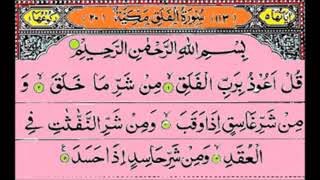 سُوْرَةُ الْفَلَقِ مَكِّيَّةٌ
بِسْمِ اللهِ الرَّحْمٰنِ الرَّحِيْمِ
قُلْ اَعُوْذُ بِرَبِّ الْفَلَقِ ۙ مِنْ شَرِّ مَا خَلَقَ ۙ وَ
مِنْ شَرِّ غَاسِقٍ اِذَا وَقَبَ ۙ وَمِنْ شَرِّ النَّفّٰثٰتِ فِی
الْعُقَدِ ۙ وَمِنْ شَرِّ حَاسِدٍ اِذَا حَسَدَ